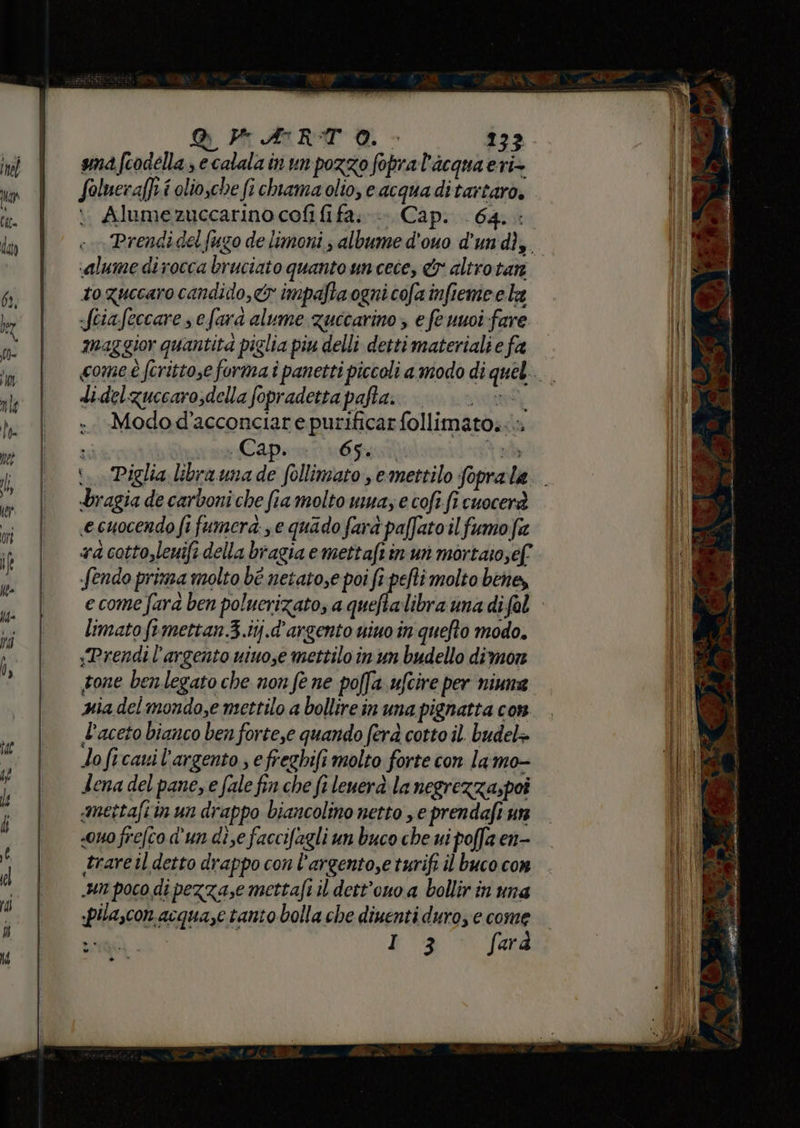 QVARTO. 133
una ſcodella, e calala in un pozzo ſopra l'acqua e ri-
ſolueraſſi ĩ olio, che ſi chiama olio, e acqua di tartaro.
Alume zuccarino coſi ſi fa. Cap. 64.
Prendi del ſugo de limoni, albume d'ouo d'un dì,
alume di rocca bruciato quanto un cece, & altro tan
to zuccaro candido, & impaſta ogni coſa inſieme e la
ſcia ſeccare, e ſarà alume zuccarino, e ſe uuoi fare
maggior quantità piglia piu delli detti materiali e fa
come è ſcritto, e forma i panetti piccoli a modo di quel
li del zuccaro, della ſopradetta paſta.
Modo d'acconciare e purificar ſollimato.
Cap. 65.
Piglia libra una de ſollimato, e mettilo ſopra la
bragia de carboni che ſia molto uiua, e coſi ſi cuocerà
e cuocendo ſi fumerà, e quãdo ſarà paſſato il fumo ſa
rà cotto, leuiſi della bragia e mettaſi in un mortaio, eſ
ſendo prima molto bẽ netato, e poi ſi peſti molto bene,
e come ſarà ben poluerizato, a queſta libra una di ſol
limato ſi mettan.ʒ.iij.d'argento uiuo in queſto modo.
Prendi l'argento uiuo, e mettilo in un budello di mon
tone ben legato che non ſe ne poſſa uſcire per niuna
uia del mondo, e mettilo a bollire in una pignatta con
l'aceto bianco ben forte, e quando ſerà cotto il budel-
lo ſi caui l'argento, e freghiſi molto forte con la mo-
lena del pane, e ſale fin che ſi leuerà la negrezza, poi
mettaſi in un drappo bianco lino netto, e prendaſi un
ouo freſco d'un dì, e facciſagli un buco che ui poſſa en-
trare il detto drappo con l'argento, e turiſi il buco con
un poco di pezza, e mettaſi il dett'ouo a bollir in una
pila, con acqua, e tanto bolla che diuenti duro, e come
I 3 ſarà